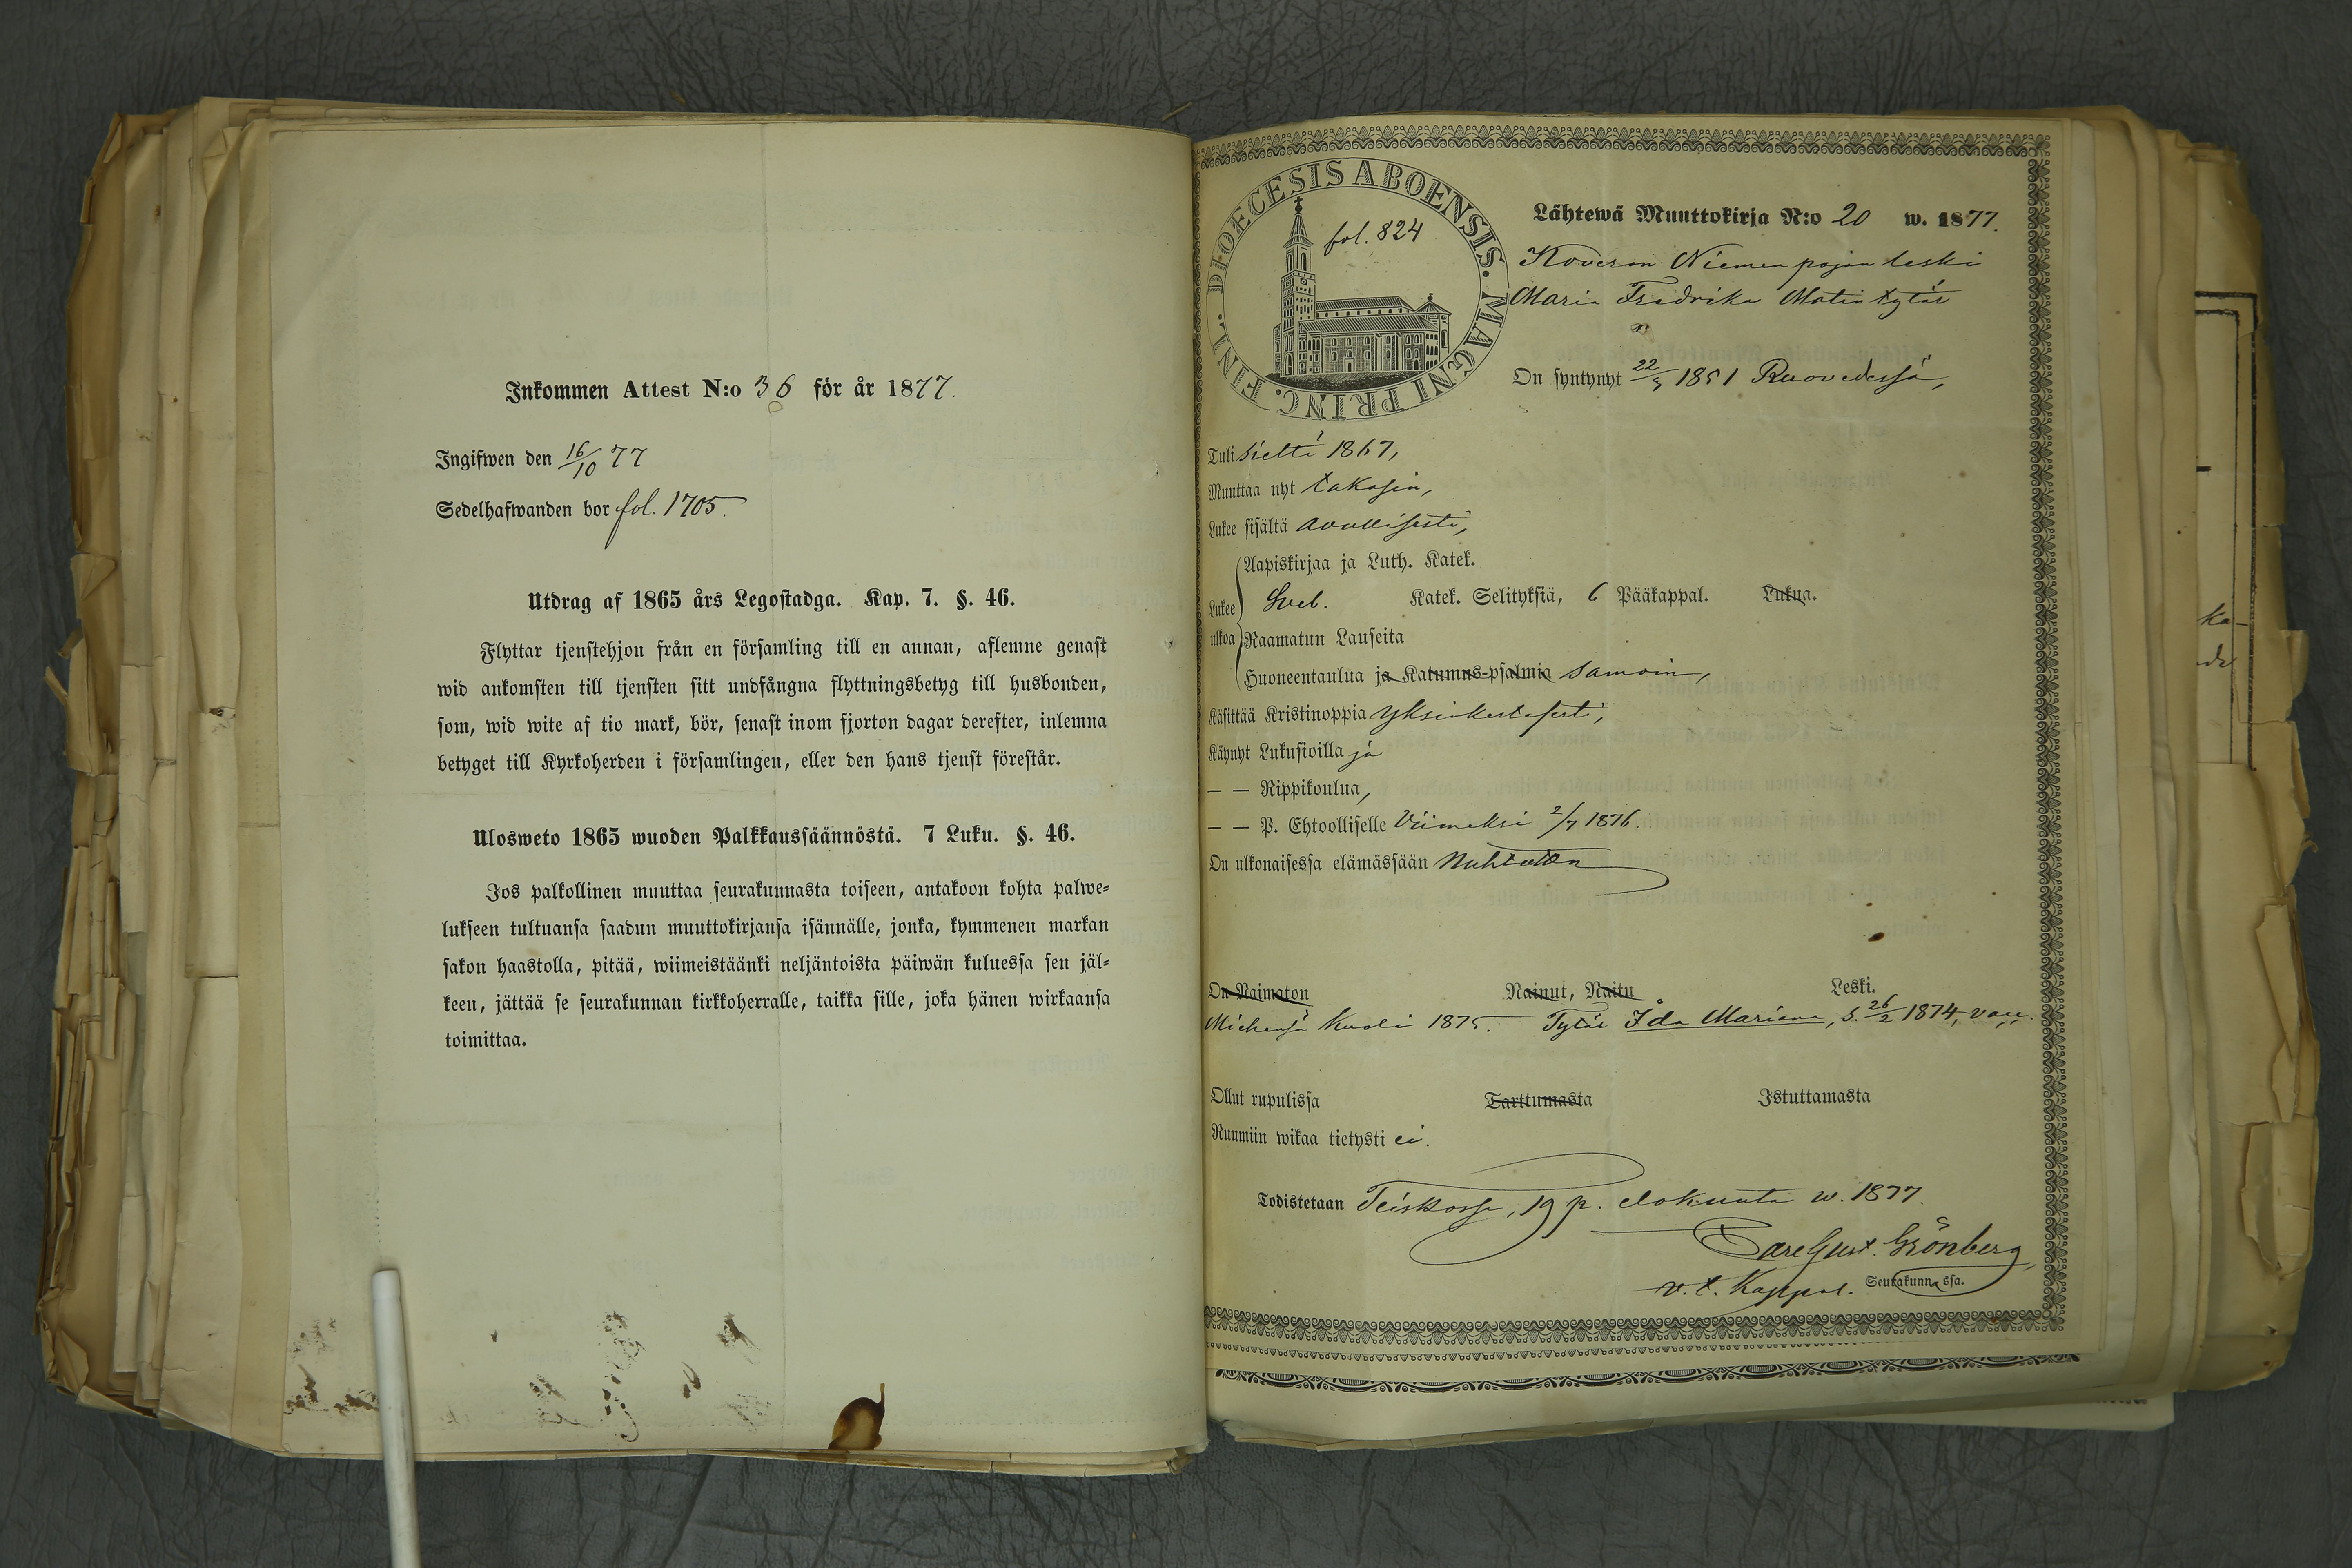 Inkommen Attest N:o 36 för år 1877.
Ingifwen den 16/10 77
Sedelhafwanden bor fol. 1705.
Utdrag af 1865 års Legostadga. Kap. 7. §. 46.
Flyttar tjenstehjon från en församling till en annan, aflemne genast
wid ankomsten till tjensten sitt undfångna flyttningsbetyg till husbonden,
som, wid wite af tio mark, bör, senast inom fjorton dagar derefter, inlemna
betyget till Kyrkoherden i församlingen, eller den hans tjenst förestår.
Ulosweto 1865 wuoden Palkkaussäännöstä. 7 Luku. §. 46.
Jos palkollinen muuttaa seurakunnasta toiseen, antakoon kohta palwe-
lukseen tultuansa saadun muuttokirjansa isännälle, jonka, kymmenen markan
sakon haastolla, pitää, wiimeistäänki neljäntoista päiwän kuluessa sen jäl-
keen, jättää se seurakunnan kirkkoherralle, taikka sille, joka hänen wirkaansa
toimittaa.
DIOECESIS ABOENSIS. MAGNI PRINC. FINL.
fol. 824
Lähtewä Muuttokirja N:o 20 w. 1877.
Koveron Niemen pojan leski
Maria Fredrika Matin tytär
On syntynyt 22/3 1851 Ruovedessä,
Tuli sieltä 1867,
Muuttaa nyt takasin,
Lukee sisältä avullisesti,
Aapiskirjaa ja Luth. Katek.
Lukee ulkoa Sveb. Katek. Selityksiä, 6 Pääkappal. Lukua.
Raamatun Lauseita
Huoneentaulua ja Katumus-psalmia samoin,
Käsittää Kristinoppia yksinkertasesti,
Käynyt Lukusioilla ja
— — Rippikoulua,
— — P. Ehtoolliselle Viimeksi 2/7 1876.
On ulkonaisessa elämässään Nuhteeton
On Naimaton Nainut, Naitu Leski.
Miehensä kuoli 1875. Tytär Ida Mariana, s. 26/2 1874,
Ollut rupulissa Tarttumasta Istuttamasta
Ruumiin wikaa tietysti ei.
Todistetaan Teiskossa, 19 p. elokuuta w. 1877.
Carl Gust. Grönberg,
v. t. Kappal. Seurakunnassa.